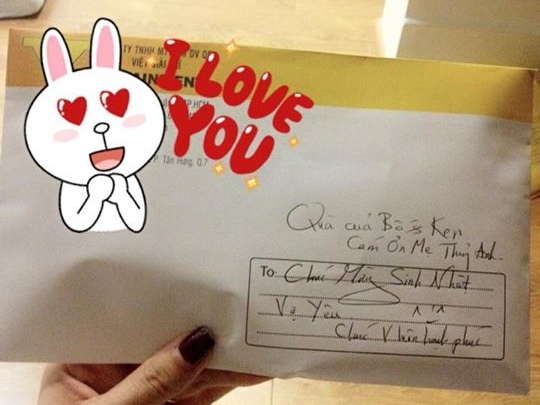 TY TNHH
DV
VIỆT
I LOVE
YOU
TP.HCM
P. Tân Hưng, Q.7
Quà của Bố Ken
Cám Ơn Mẹ Thuý Anh.
To: Chúc Mừng Sinh Nhật
Vợ Yêu
Chúc V luôn hạnh phúc